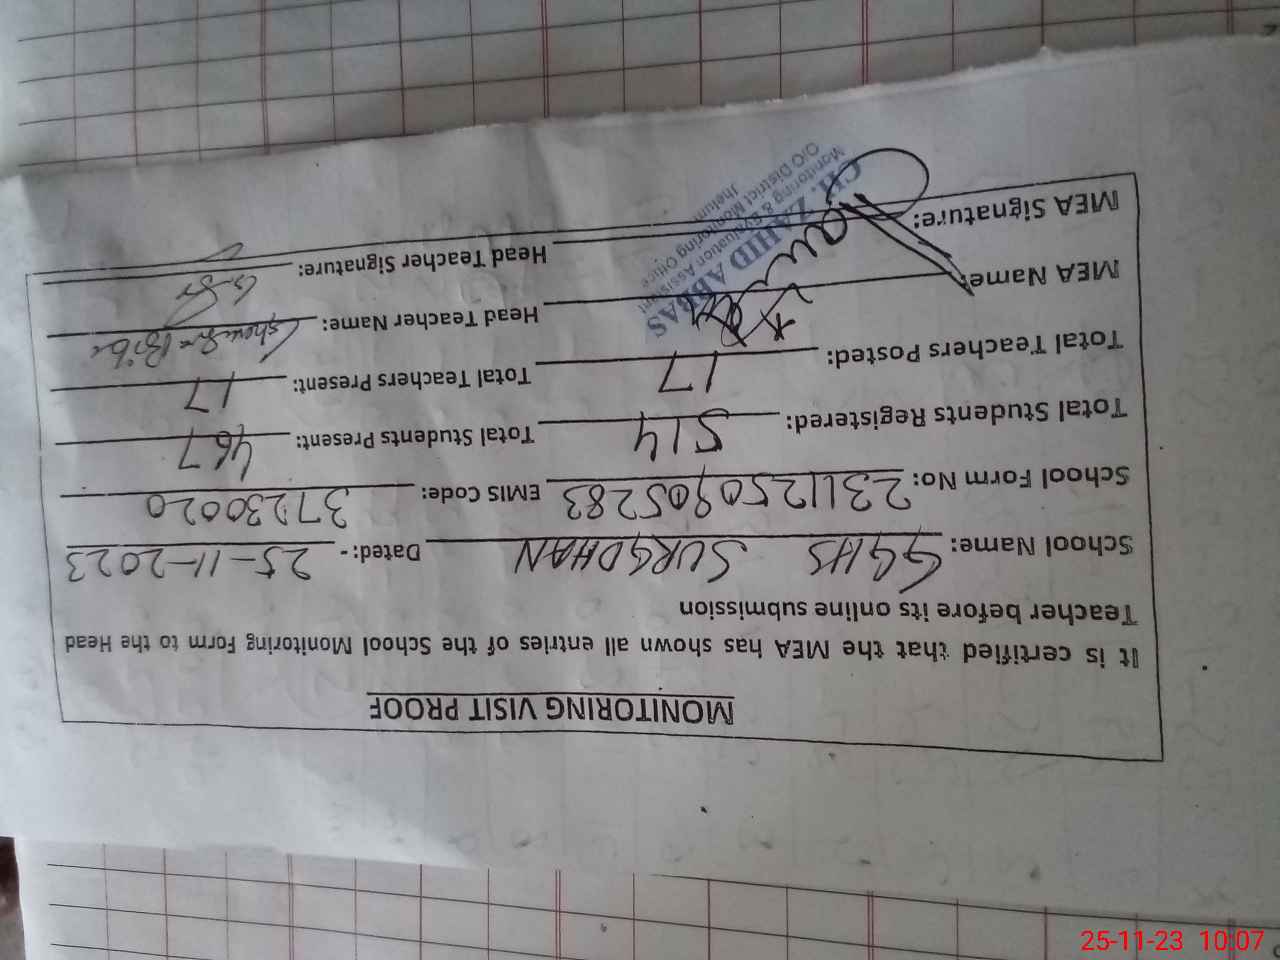 MONITORING VISIT PROOF
It is certified that the MEA has shown all entries of the School Monitoring Form to the Head
Teacher before its online submission
School Name: GGHS SURGDHAN Dated:- 25-11-2023
School Form No: 2311250905283 EMIS Code: 37230020
Total Students Registered: 514 Total Students Present: 467
Total Teachers Posted: 17 Total Teachers Present: 17
MEA Name: Head Teacher Name: Bibi
MEA Signature: Head Teacher Signature:
CH. ZAHID ABBAS
Monitoring & Evaluation Assistant
O/O District Monitoring Office
Jhelum
25-11-23 10:07